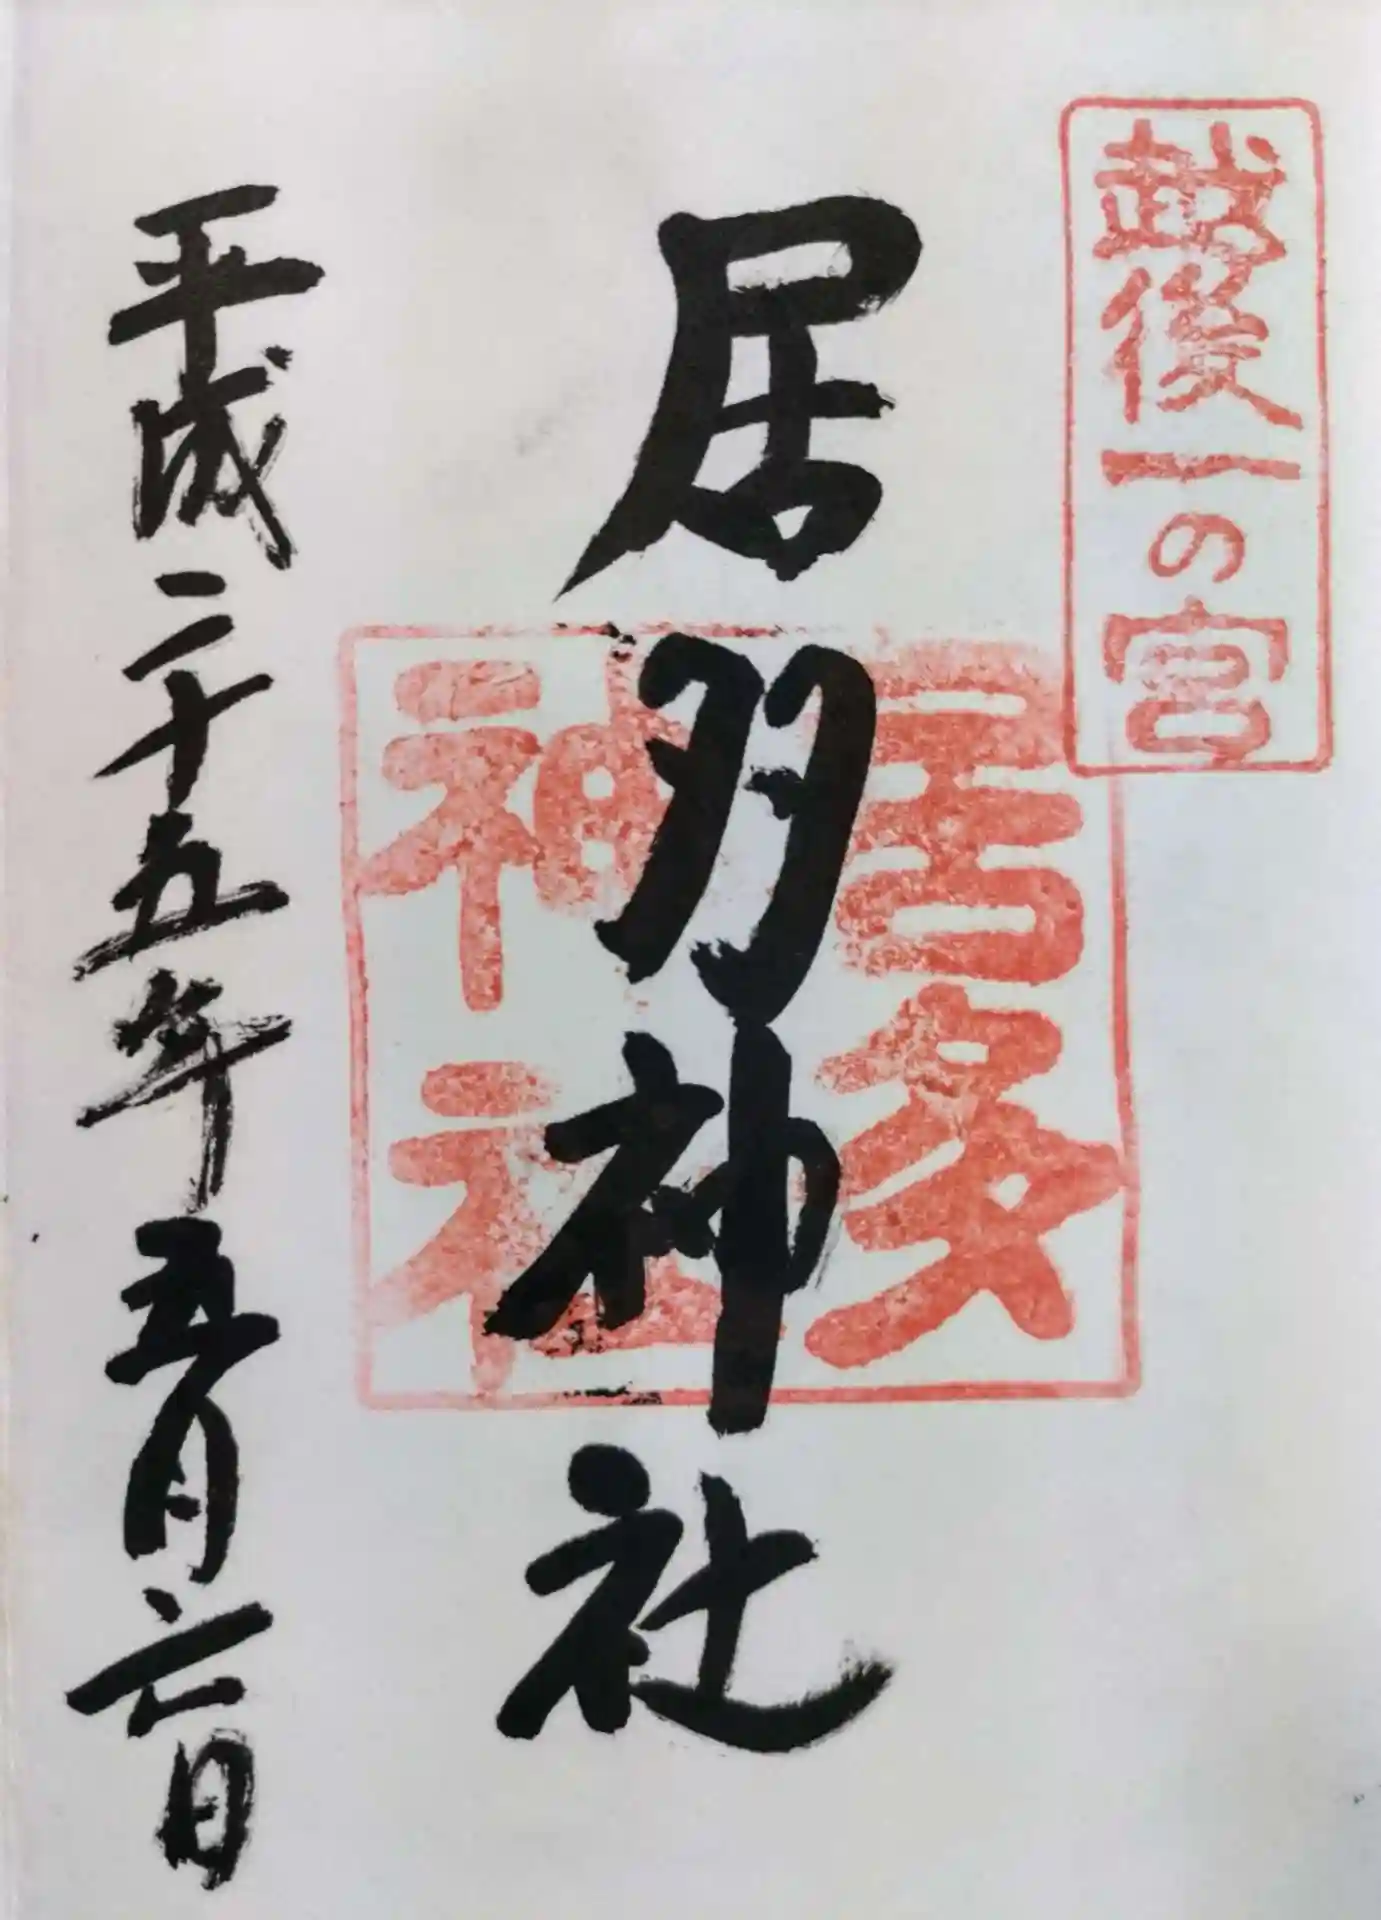 越後一の宮
居多
神社
居多神社
平成二十五年五月六日